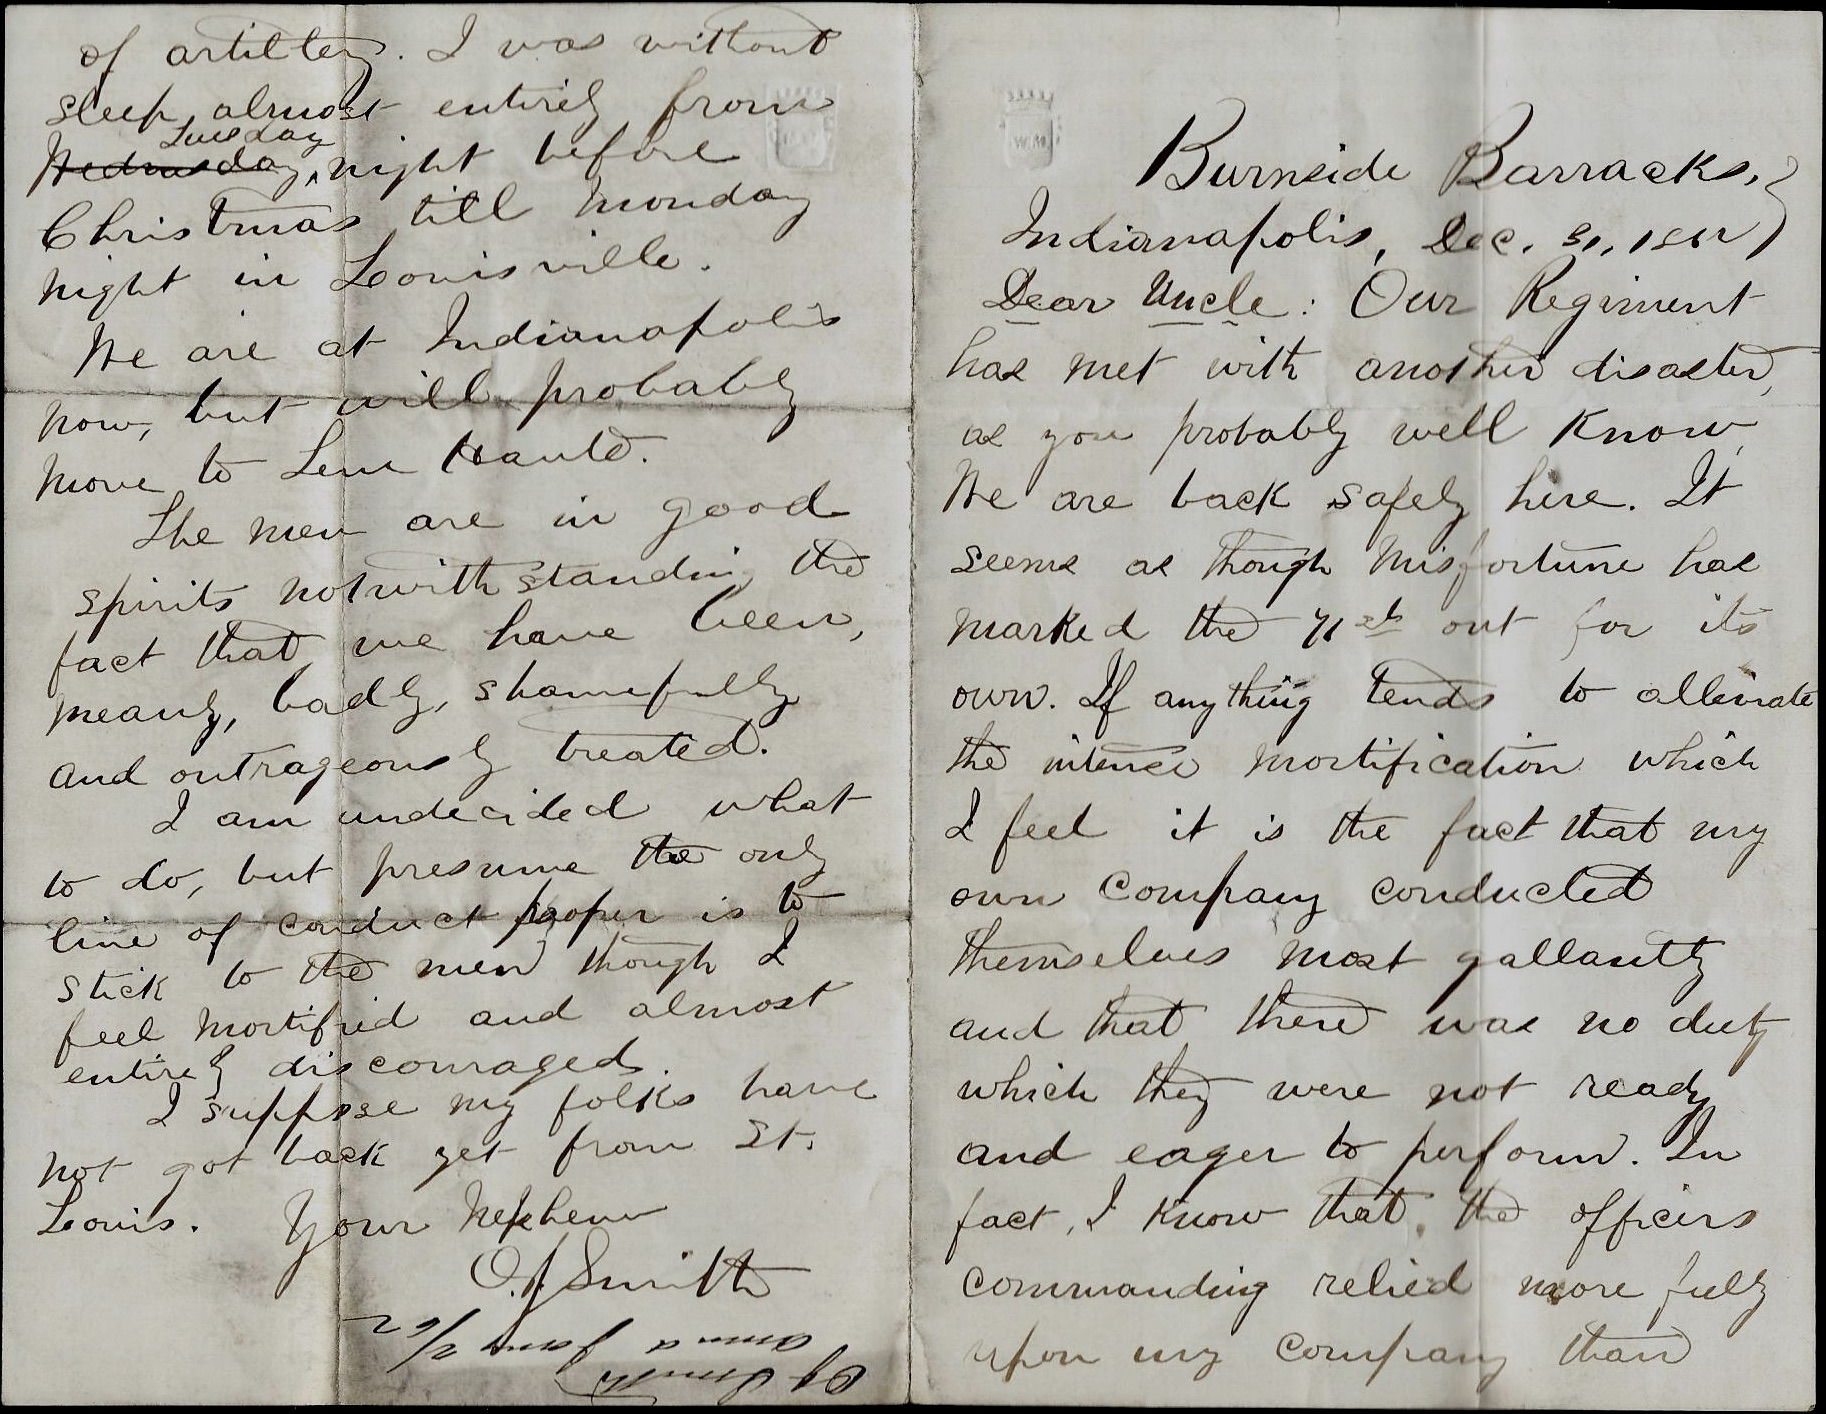 Burnside Barracks,
Indianapolis, Dec. 31, 1862
Dear Uncle: Our Regiment
has met with another disaster,
as you probably well know.
We are back safely here. It
seems as though misfortune has
marked the 71st out for its
own. If anything tends to alleviate
the intense mortification which
I feel it is the fact that my
own company conducted
themselves most gallantly
and that there was no duty
which they were not ready
and eager to perform. In
fact, I know that the officers
commanding relied more fully
upon my company than
of artillery. I was without
sleep almost entirely from
Tuesday
Wednesday, night before
Christmas till Monday
night in Louisville.
We are at Indianapolis
now, but will probably
move to Terre Haute.
The men are in good
spirits notwithstanding the
fact that we have been,
meanly, badly, shamefully
and outrageously treated.
I am undecided what
to do, but presume the only
line of conduct proper is to
stick to the men though I
feel mortified and almost
entirely discouraged.
I suppose my folks have
not got back yet from St.
Louis. Your Nephew
O. J. Smith
OJ Smith
Jany 2/62
W.M.